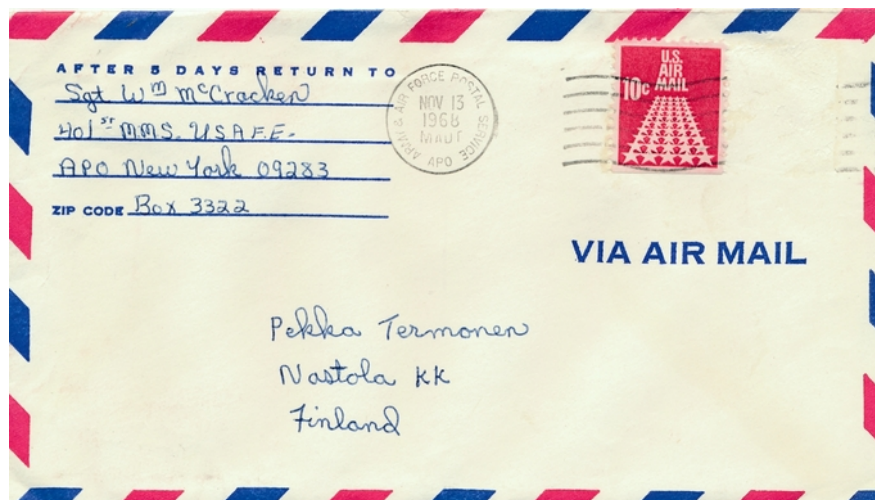 AFTER 5 DAYS RETURN TO
Sgt Wm McCracken
401st MMS. USAFE.
APO New York 09283
ZIP CODE Box 3322
ARMY & AIR FORCE POSTAL SERVICE
NOV 13
1968
APO
U.S.
AIR
MAIL
10c
VIA AIR MAIL
Pekka Termonen
Nastola KK
Finland